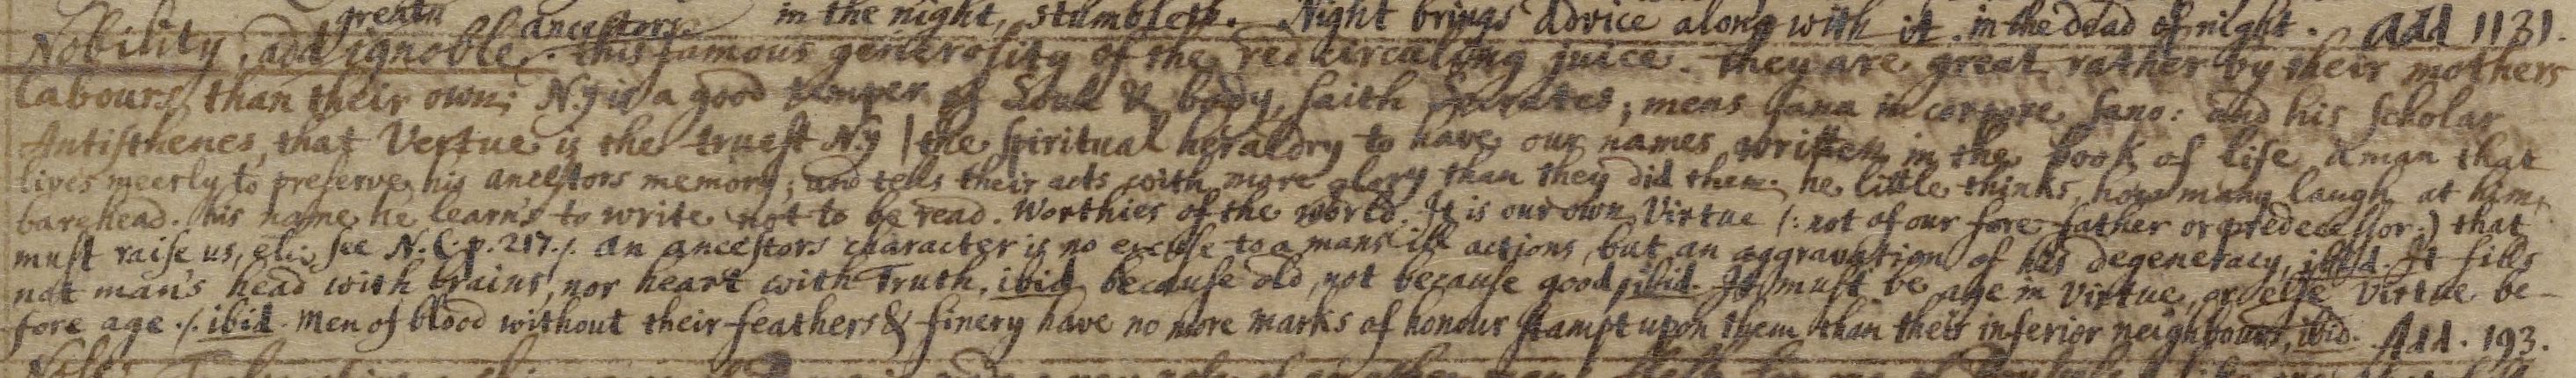 in the night, stumbleth. Night brings advice along with it. in the dead of night. Add 1131.
Nobility, add ignoble. greatn ancestors. this famous generosity of the red circaling juice. they are great rather by their mothers
labours than their own; N.y is a good temper of Soul & body, saith Socrates; mens sana in corpore sano: and his scholar
Antisthenes, that Vertue is the truest N.y | the spiritual heraldry to have our names written in the book of life a man that
lives meerly to preserve his ancestors memory; and tells their acts with more glory than they did them. he little thinks, how many laugh at him
barehead. his name he learn's to write not to be read. Worthies of the world. It is our own Virtue (: not of our fore-father or predecessor:) that
must raise us, see N. C. p. 217./. an ancestors character is no excuse to a mans ill actions, but an aggravation of his degeneracy, ibid. It fills
not man's head with brains, nor heart with Truth, ibid because old, not because good, ibid. It must be age in virtue, or else virtue be-
fore age ./. ibid. Men of blood without their feathers & finery have no more marks of honour stampt upon them than their inferior neighbours, ibid. Add. 193.